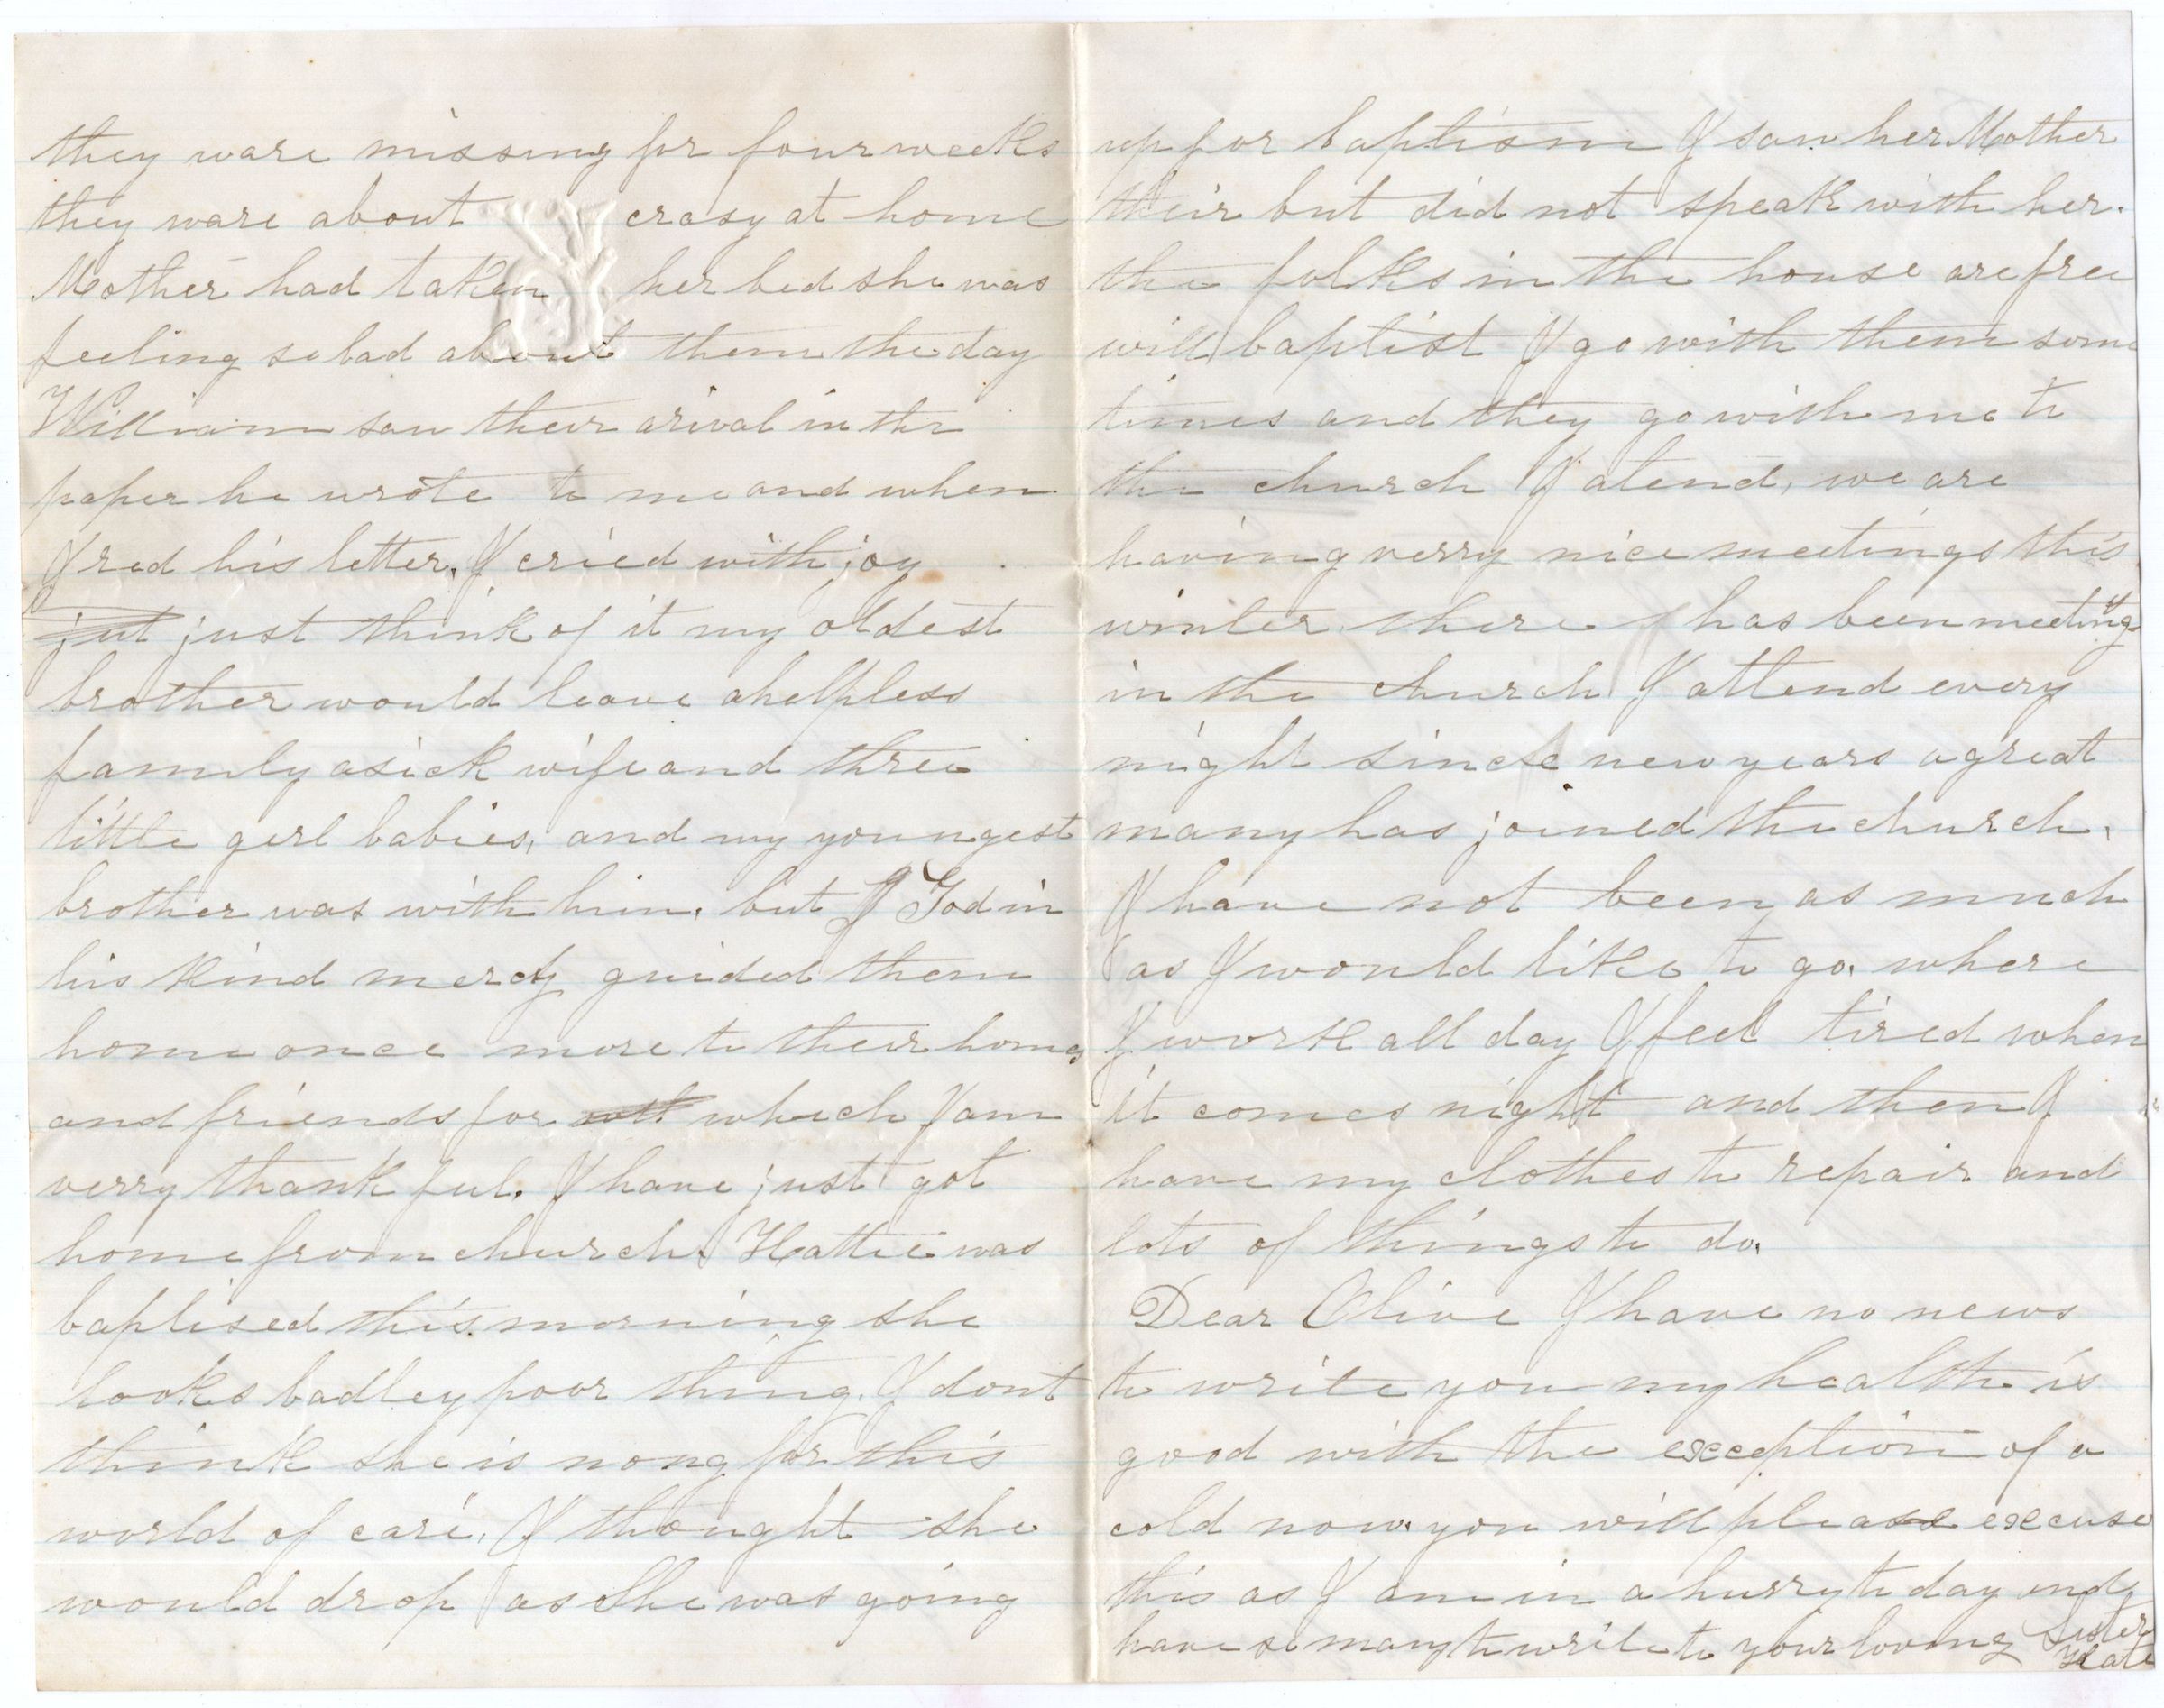 they ware missing for four weeks
they ware about crasy at home
Mother had taken her bed she was
feeling so bad about them the day
William saw their arival in the
paper he wrote to me and when
I red his letter, I cried with joy
jut just think of it my oldest
brother would leave a helpless
family a sick wife and three
little gerl babies, and my youngest
brother was with him, but God in
his kind mercy guided them
home once more to their home
and friends for which I am
verry thankful. I have just got
home from church. Hattie was
baptised this morning she
looks badley poor thing. I dont
think she is nong for this
world of care, I thought she
would drop as she was going
up for baptism I saw her Mother
their but did not speak with her.
the folks in the house are free
will baptist I go with them some
times and they go with me to
the church I atend, we are
having verry nice meetings this
winter there has been meeting
in the church I attend every
night since new years a great
many has joined the church,
I have not been as much
as I would like to go, where
I work all day I feel tired when
it comes night and then I
have my clothes to repair and
lots of things to do,
Dear Olive I have no news
to write you my health is
good with the exception of a
cold now, you will please excuse
this as I am in a hurry to day and
have so many to write to your loving Sister
Kate